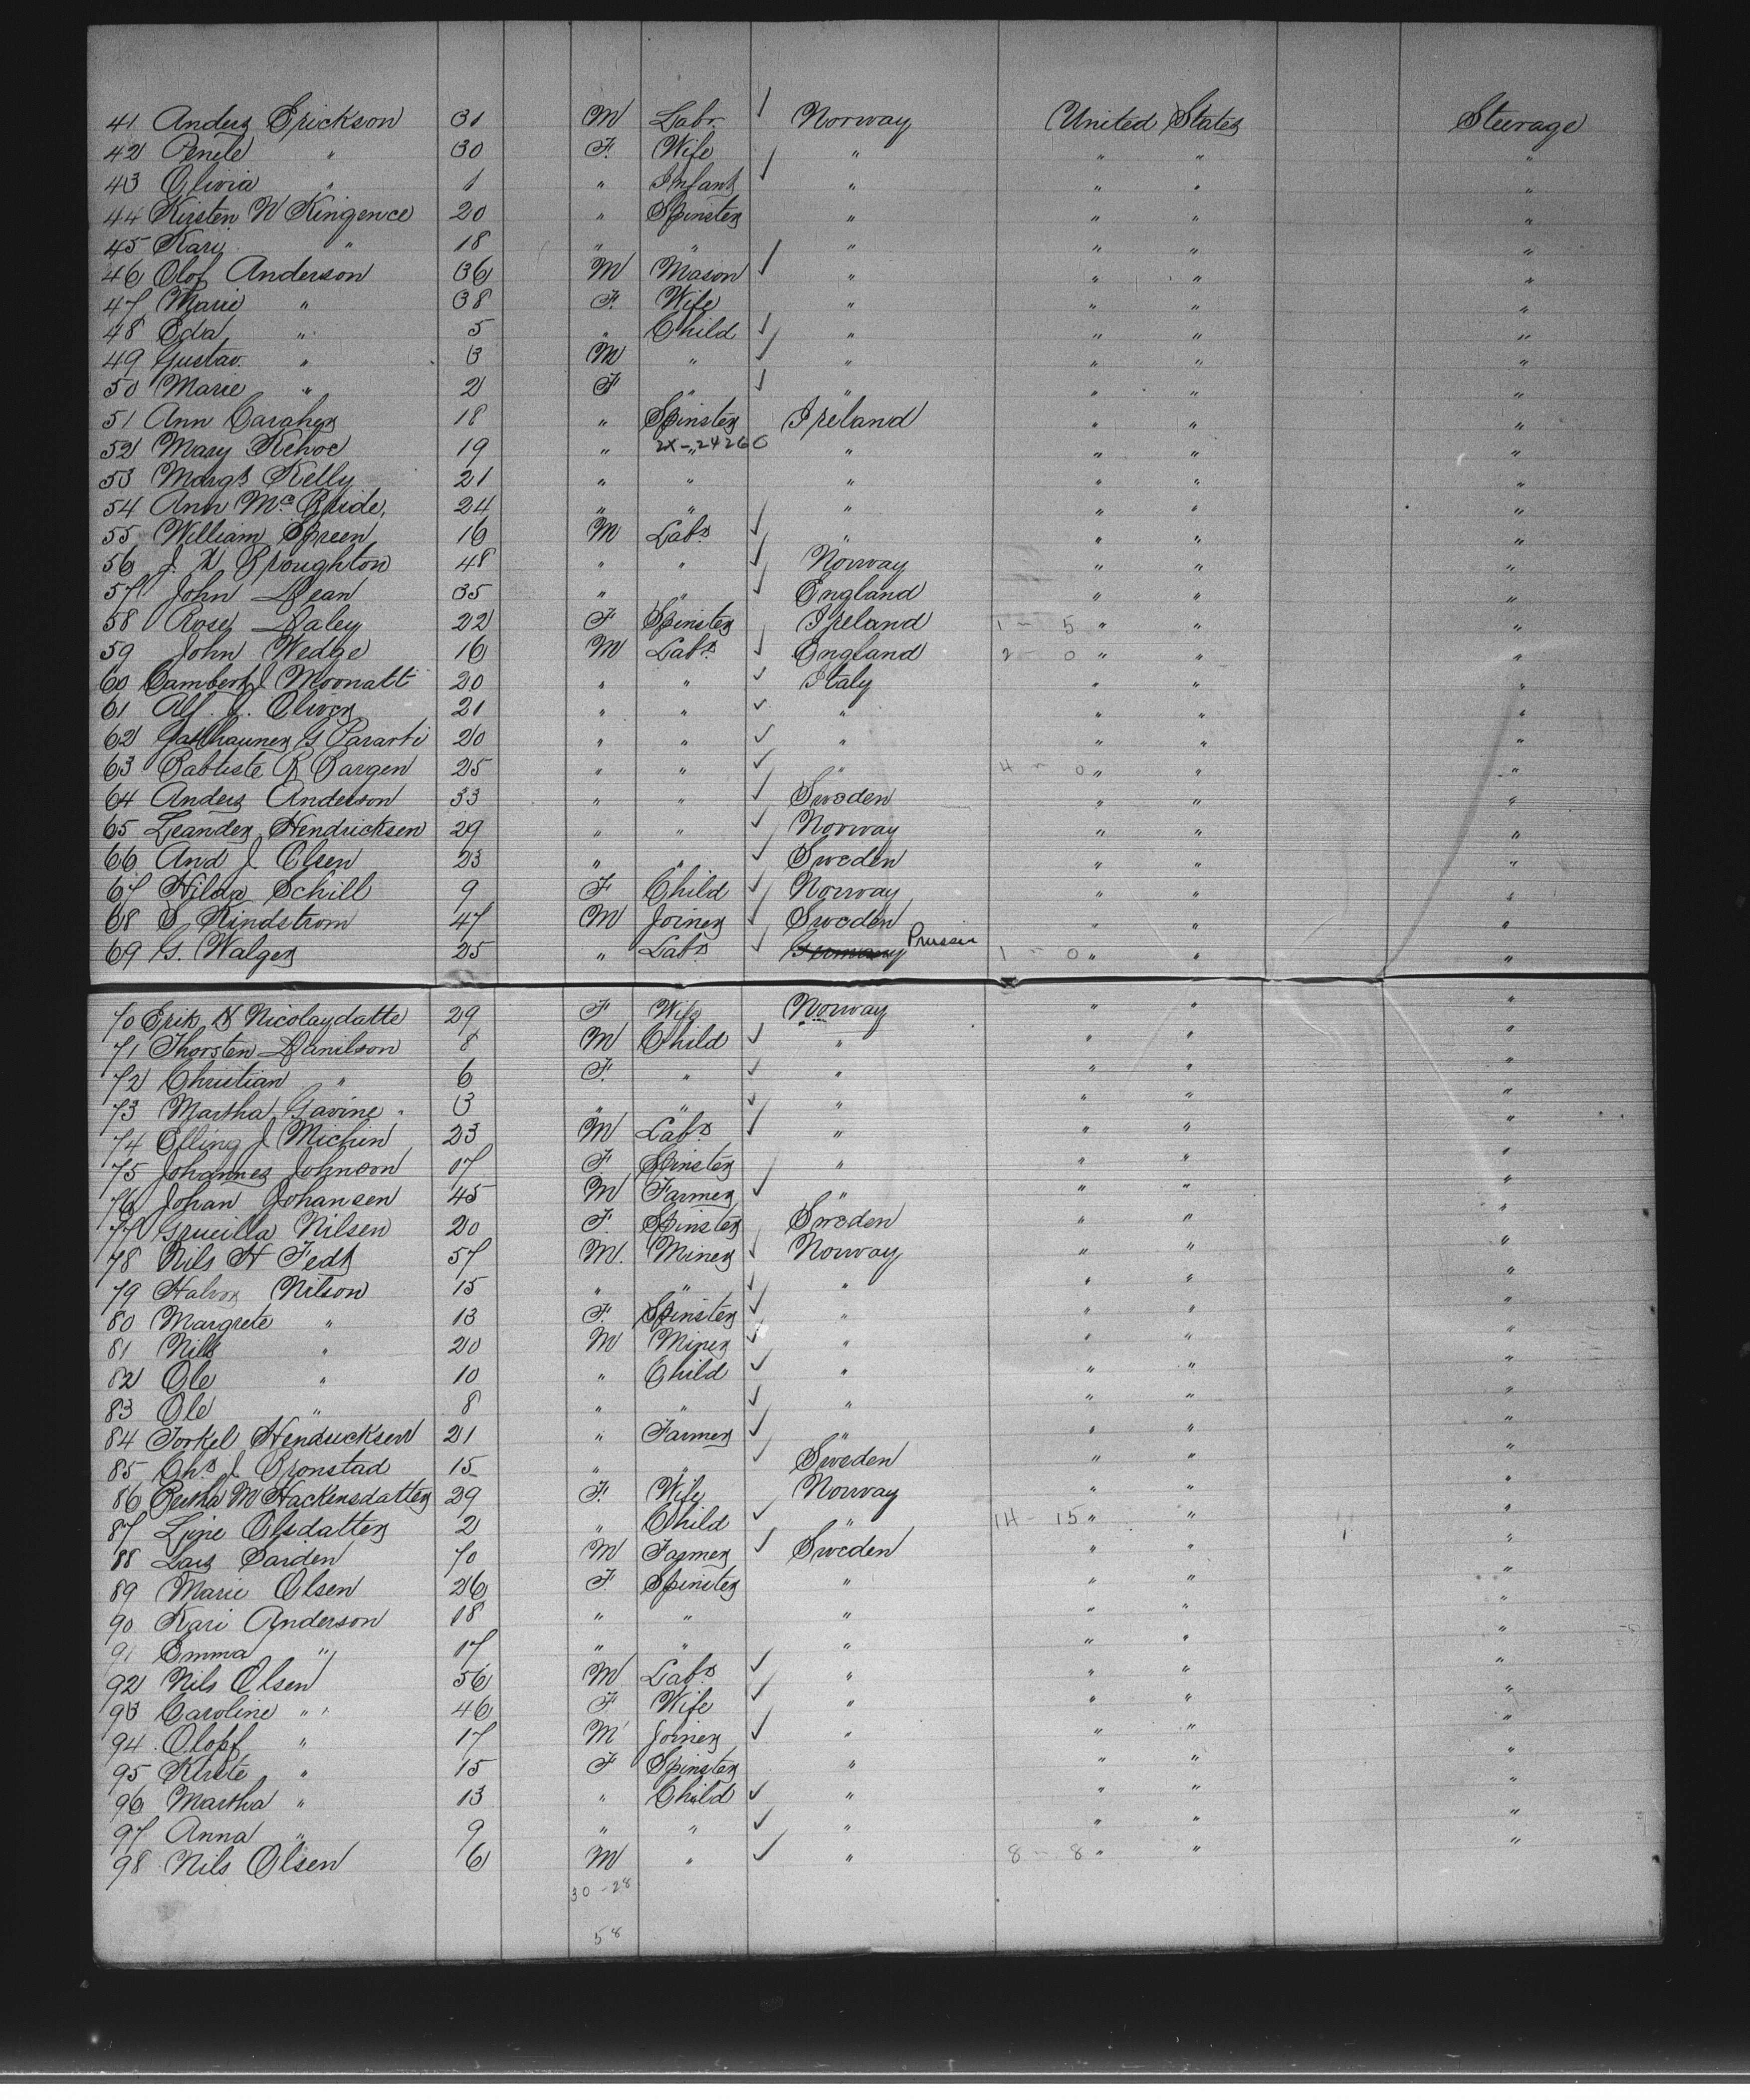 41 Anders Erickson 31 M Labr Norway United States Steerage
42 " 30 F. Wife " " " "
43 Olivia " 1 " Infant " " " "
44 Kirsten N Kingence 20 " Spinster " " " "
45 Kari " 18 " " " " " "
46 Olof Anderson 36 M Mason " " " "
47 Marie " 38 F. Wife " " " "
48 Eda " 5 " Child " " " "
49 Gustav. " 3 M " " " " "
50 Marie " 2 F " " " " "
51 Ann Caraher 18 " Spinster Ireland " " "
52 Mary Kehoe 19 " " 2X-24260 " " " "
53 Margt Kelly 21 " " " " " "
54 Ann McBride. 24 " " " " " "
55 William Spreen 16 M Labr " " " "
56 J. N Broughton 48 " " Norway " " "
57 John Dean 35 " " England " " "
58 Rose Daley 22 F Spinster Ireland 1 - 5 " " "
59 John Wedge 16 M Labr England 2 - 0 " " "
60 Cambert J Moonatti 20 " " Italy " " "
61 Alf. J. Oliver 21 " " " " " "
62 G Pararti 20 " " " " " "
63 Batiste B Bargen 25 " " " 4 - 0 " " "
64 Anders Anderson 33 " " Sweden " " "
65 Leander Hendricksen 29 " " Norway " " "
66 And J Olsen 23 " " Sweden " " "
67 Hilda Schill 9 F Child Norway " " "
68 S. Kindstrom 47 M Joiner Sweden " " "
69 G. Walger 25 " Labr Germany Prussia 1 - 0 " " "
70 Erik N Nicolaydatte 29 F Wife Norway " " "
71 Thorsten Danilson 8 M Child " " " "
72 Christian " 6 F. " " " " "
73 Martha Gavine " 3 " " " " " "
74 Elling J Michin 23 M Labr " " " "
75 Johannes Johnson 17 F. Spinster " " " "
76 Johan Johansen 45 M Farmer " " " "
77 Grucilla Nilsen 20 F. Spinster Sweden " " "
78 Nils H Fedt 57 M. Miner Norway " " "
79 Halvor Nilson 15 " " " " " "
80 Margrete " 13 F. Spinster " " " "
81 Nils " 20 M Miner " " " "
82 Ole " 10 " Child " " " "
83 Ole " 8 " " " " " "
84 Torkel Hendricksen 21 " Farmer " " " "
85 Chs J Cronstad 15 " " Sweden " " "
86 Bertha M Hackensdatter 29 F. Wife Norway " " "
87 Line Olsdatter 2 " Child " 14 - 15 " " "
88 Lars Sarden 70 M Farmer Sweden " " "
89 Marie Olsen 26 F. Spinster " " " "
90 Kari Anderson 18 " " " " " "
91 Emma " 17 " " " " " "
92 Nils Olsen 56 M Labr " " " "
93 Caroline " 46 F Wife " " " "
94 Oloff " 17 M Joiner " " " "
95 " 15 F Spinster " " " "
96 Martha " 13 " Child " " " "
97 Anna " 9 " " " " " "
98 Nils Olsen 6 M " " 8 - 8 " " "
30 - 28
58